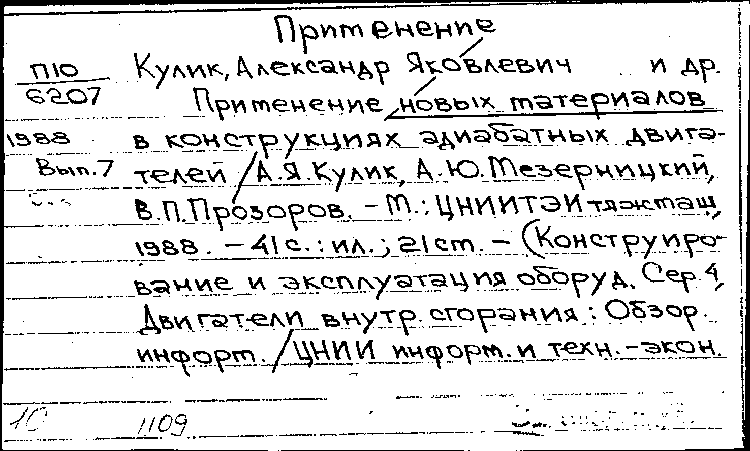 Применение
П10 Кулик, Александр Яковлевич и др.
6207 Применение новых материалов
1988 в конструкциях адиабатных двига-
Вып.7 телей / А.Я. Кулик, А.Ю. Мезерницкий,
В.П. Прозоров. – М.: ЦНИИТЭИтяжмаш,
1988. – 41 с.: ил.; 21 см. – (Конструиро-
вание и эксплуатация оборуд. Сер. 4,
Двигатели внутр. сгорания: Обзор.
информ. / ЦНИИ информ. и техн.-экон.
10 1109